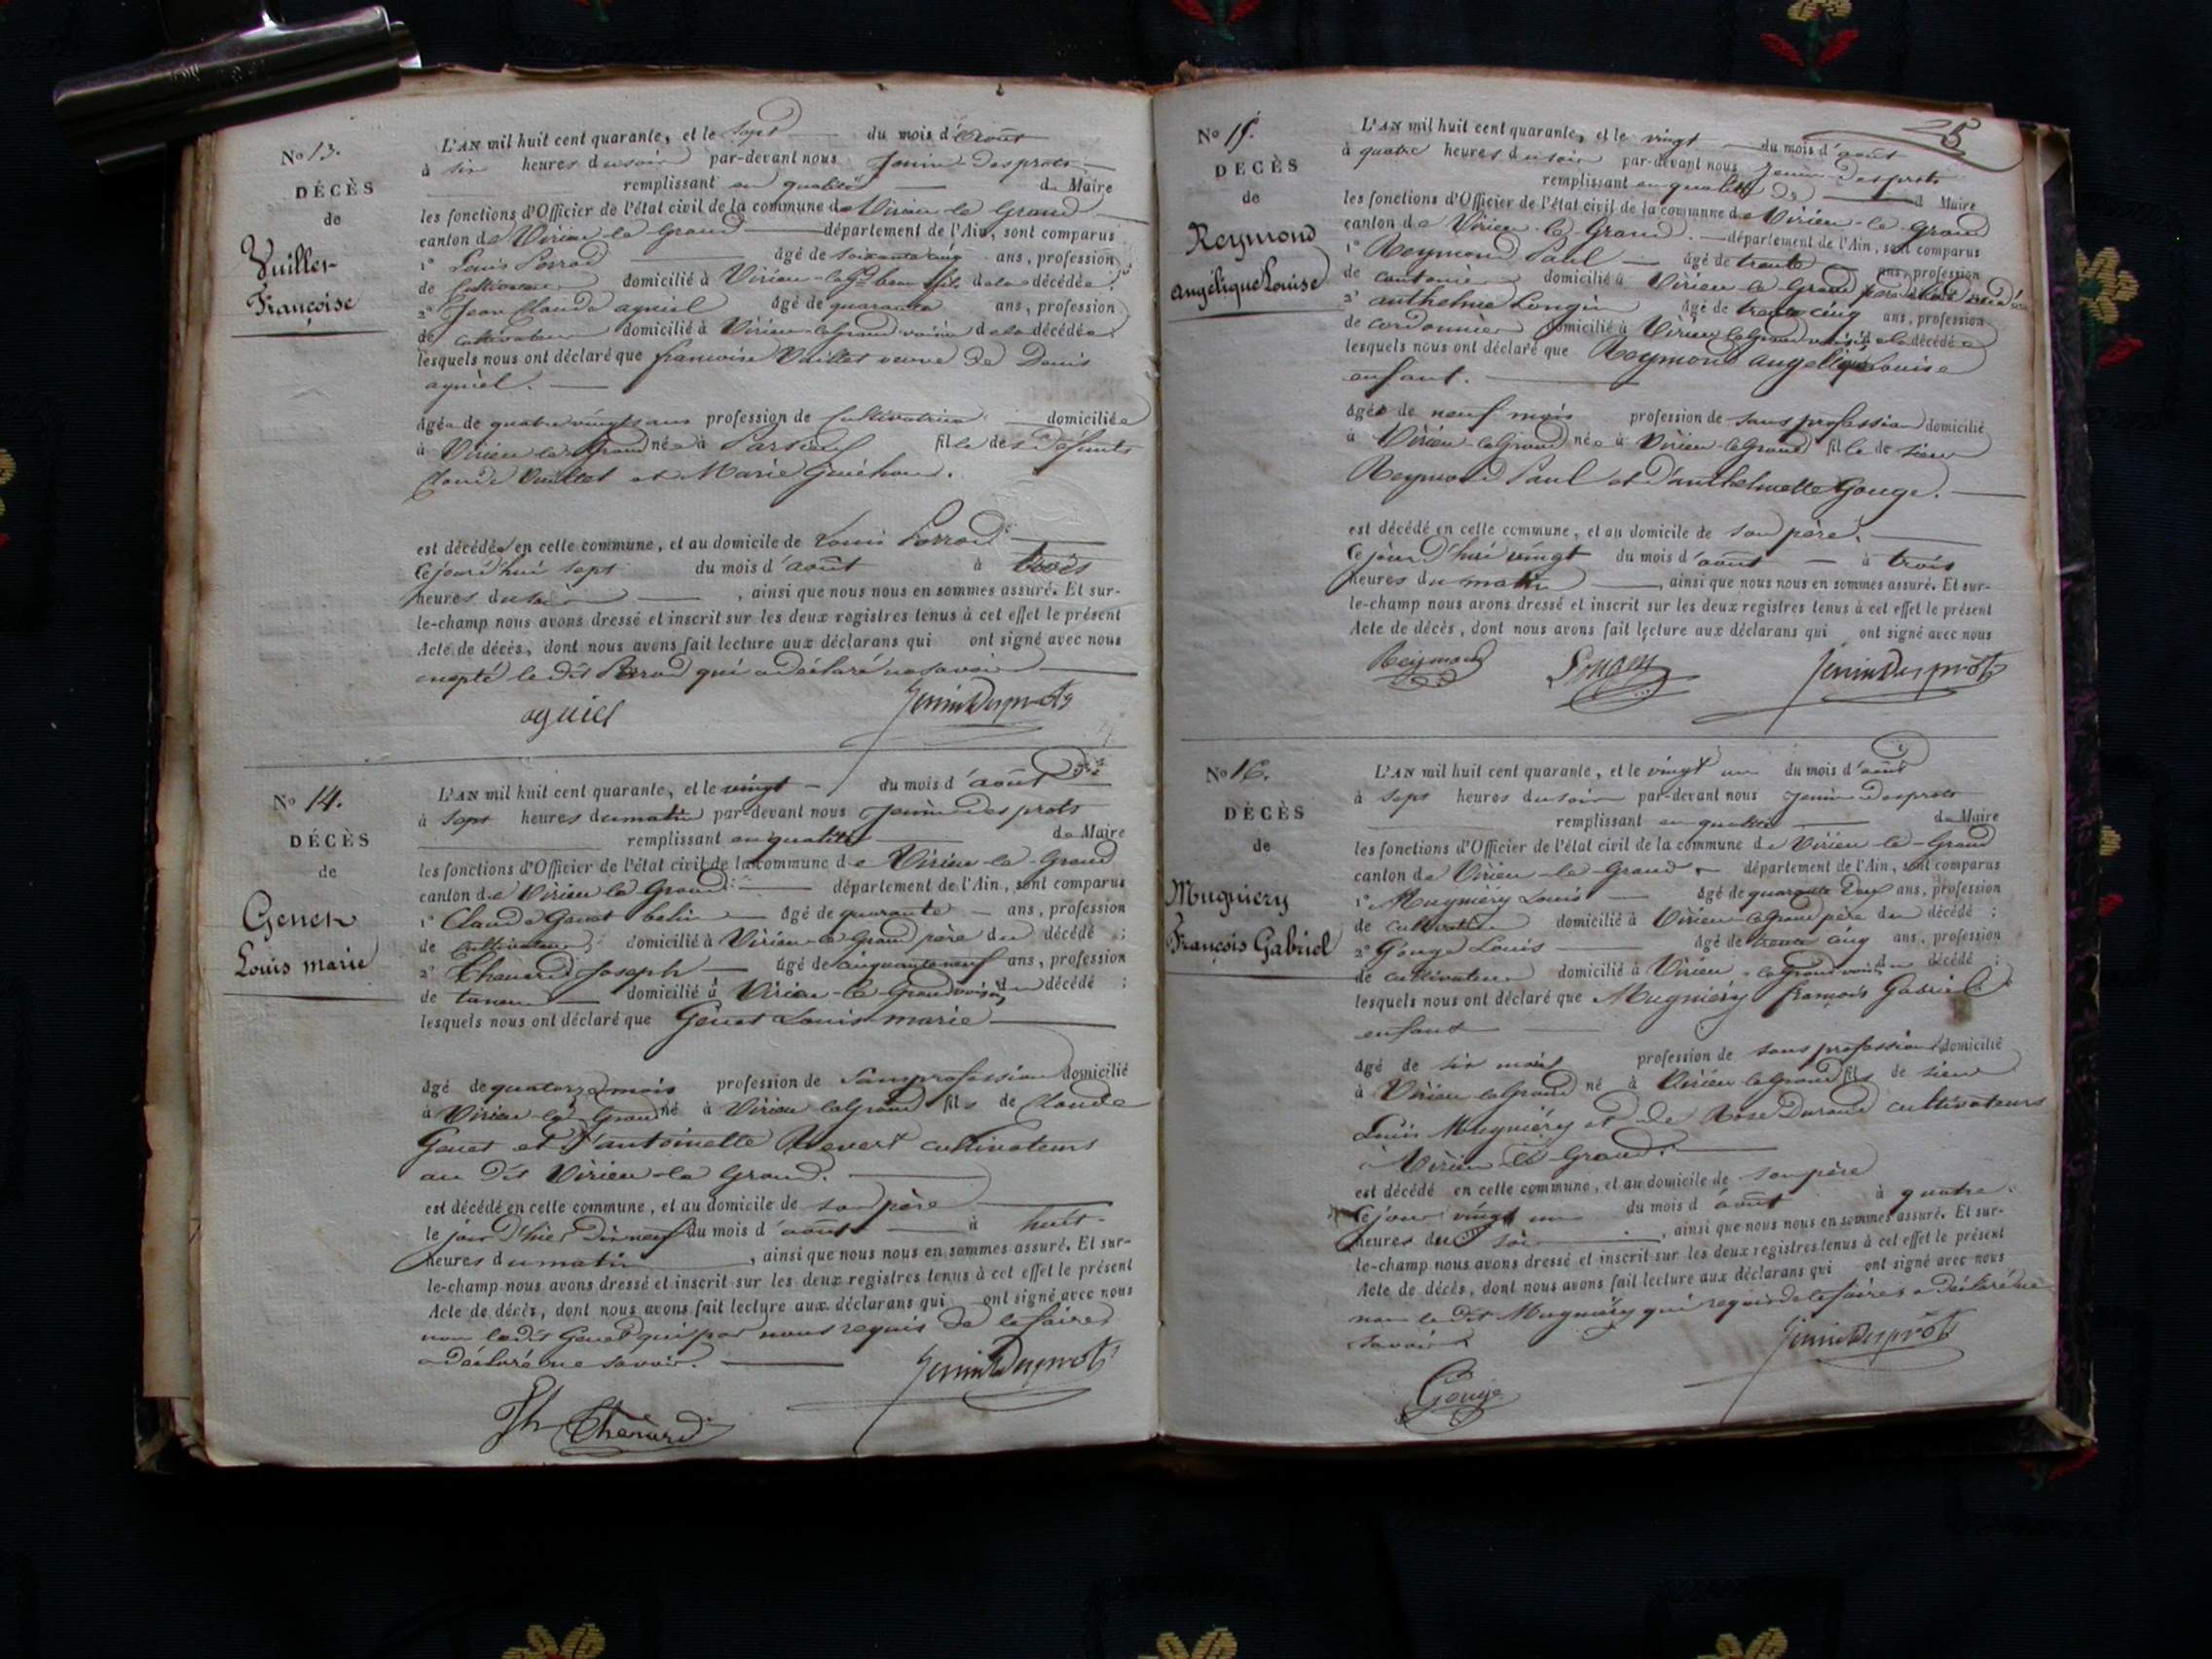 No 13.
DÉCÈS
de
Vuillet
Françoise
L'AN mil huit cent quarante, et le sept du mois d'Août
à six heures du soir par-devant nous Jenin Desprots
remplissant en qualité de Maire
les fonctions d'Officier de l'état civil de la commune de Virieu-le-Grand
canton de Virieu-le-Grand département de l'Ain, sont comparus
1° Louis Perrod âgé de soixante cinq ans, profession
de Cultivateur domicilié à Virieu-le-Gd beau fils de la décédée ;
2° Jean Claude ayniel âgé de quarante ans, profession
de cultivateur domicilié à Virieu-le-Grand voisin de la décédée
lesquels nous ont déclaré que francoise Vuillet veuve de Denis
ayniel.
âgée de quatre vingts ans profession de Cultivatrice domiciliée
à Virieu-le-Grand née à fille des défunts
Claude Vuillet et Marie
est décédée en cette commune, et au domicile de Louis Perrod
Cejourd'hui sept du mois d'août à trois
heures du soir , ainsi que nous nous en sommes assuré. Et sur-
le-champ nous avons dressé et inscrit sur les deux registres tenus à cet effet le présent
Acte de décès, dont nous avons fait lecture aux déclarans qui ont signé avec nous
excepté le dit Perrod qui a déclaré ne savoir
ayniel Jenin Desprots
No 14.
DÉCÈS
de
Genet
Louis marie
L'AN mil huit cent quarante, et le vingt du mois d'août
à sept heures du matin par-devant nous Jenin Desprots
remplissant en qualité de Maire
les fonctions d'Officier de l'état civil de la commune de Virieu-le-Grand
canton de Virieu le Grand département de l'Ain, sont comparus
1° Claude Genet belin âgé de quarante ans, profession
de Cultivateur domicilié à Virieu-le-Grand père du décédé ;
2° Chenard Joseph âgé de cinquante neuf ans, profession
de taneur domicilié à Virieu-le-Grand voisin du décédé ;
lesquels nous ont déclaré que Genet Louis marie
âgé de quatorze mois profession de Sans profession domicilié
à Virieu-le-Grand né à Virieu le Grand fils de Claude
Genet et d'antoinette Revert cultivateurs
au dit Virieu-le Grand.
est décédé en cette commune, et au domicile de son père
le jour d'hier Dix neuf du mois d'août à huit
heures du matin , ainsi que nous nous en sommes assuré. Et sur-
le-champ nous avons dressé et inscrit sur les deux registres tenus à cet effet le présent
Acte de décès, dont nous avons fait lecture aux déclarans qui ont signé avec nous
non ledit Genet qui par nous requis de le faire
a déclaré ne savoir.
Jenin Desprots
Jh Chenard
25
No 15.
DÉCÈS
de
Reymond
angélique Louise
L'AN mil huit cent quarante, et le vingt du mois d'août
à quatre heures du soir par-devant nous Jenin Desprots
remplissant en qualité de Maire
les fonctions d'Officier de l'état civil de la commune de Virieu-le-Grand
canton de Virieu-le-Grand département de l'Ain, sont comparus
1° Reymond Paul âgé de trente ans, profession
de cantonier domicilié à Virieu-le Grand père de la décédée
2° anthelme Longin âgé de trente cinq ans, profession
de cordonnier domicilié à Virieu le Grand voisin de la décédée
lesquels nous ont déclaré que Reymond angélique Louise
enfant.
âgée de neuf mois profession de sans profession domicilié
à Virieu-le-Grand née à Virieu-le-Grand fille de sieur
Reymond Paul et d'anthelmette Gouge.
est décédé en cette commune, et au domicile de son père.
Cejourd'hui vingt du mois d'août à trois
heures du matin , ainsi que nous nous en sommes assuré. Et sur-
le-champ nous avons dressé et inscrit sur les deux registres tenus à cet effet le présent
Acte de décès, dont nous avons fait lecture aux déclarans qui ont signé avec nous
Reymond Longin Jenin Desprots
No 16.
DÉCÈS
de
Mugniery
François Gabriel
L'AN mil huit cent quarante, et le vingt un du mois d'août
à sept heures du soir par-devant nous Jenin Desprots
remplissant en qualité de Maire
les fonctions d'Officier de l'état civil de la commune de Virieu-le-Grand
canton de Virieu-le-Grand département de l'Ain, sont comparus
1° Mugniéry Louis âgé de quarante deux ans, profession
de cultivateur domicilié à Virieu-le-Grand père du décédé ;
2° Gouge Louis âgé de trente cinq ans, profession
de cultivateur domicilié à Virieu-le Grand voisin du décédé ;
lesquels nous ont déclaré que Mugniéry françois Gabriel
enfant
âgé de six mois profession de sans profession domicilié
à Virieu le Grand né à Virieu le Grand fils de sieur
Louis Mugniéry et de Rose Durand cultivateurs
à Virieu-le-Grand.
est décédé en cette commune, et au domicile de son père
Cejour vingt un du mois d'août à quatre
heures du soir , ainsi que nous nous en sommes assuré. Et sur-
le-champ nous avons dressé et inscrit sur les deux registres tenus à cet effet le présent
Acte de décès, dont nous avons fait lecture aux déclarans qui ont signé avec nous
non le dit Mugniéry qui requis de le faire a déclaré ne
savoir
Jenin Desprots
Gouge